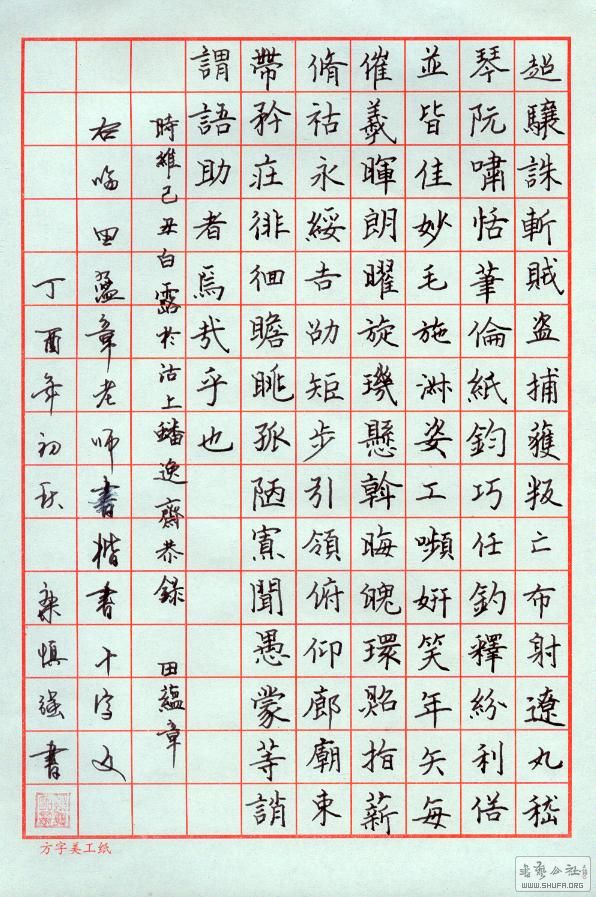 超驤誅斬賊盜捕獲叛亡布射遼丸嵇
琴阮嘯恬筆倫紙鈞巧任釣釋紛利俗
並皆佳妙毛施淑姿工嚬妍笑年矢每
催羲暉朗曜旋璣懸斡晦魄環照指薪
脩祜永綏吉劭矩步引領俯仰廊廟束
帶矜莊徘徊瞻眺孤陋寡聞愚蒙等誚
謂語助者焉哉乎也
時維己丑白露於沽上蟠逸齋恭錄 田蘊章
右臨田蘊章老師書楷書千字文
丁酉年初秋 桑慎强書
方字美工纸
书艺公社
WWW.SHUFA.ORG